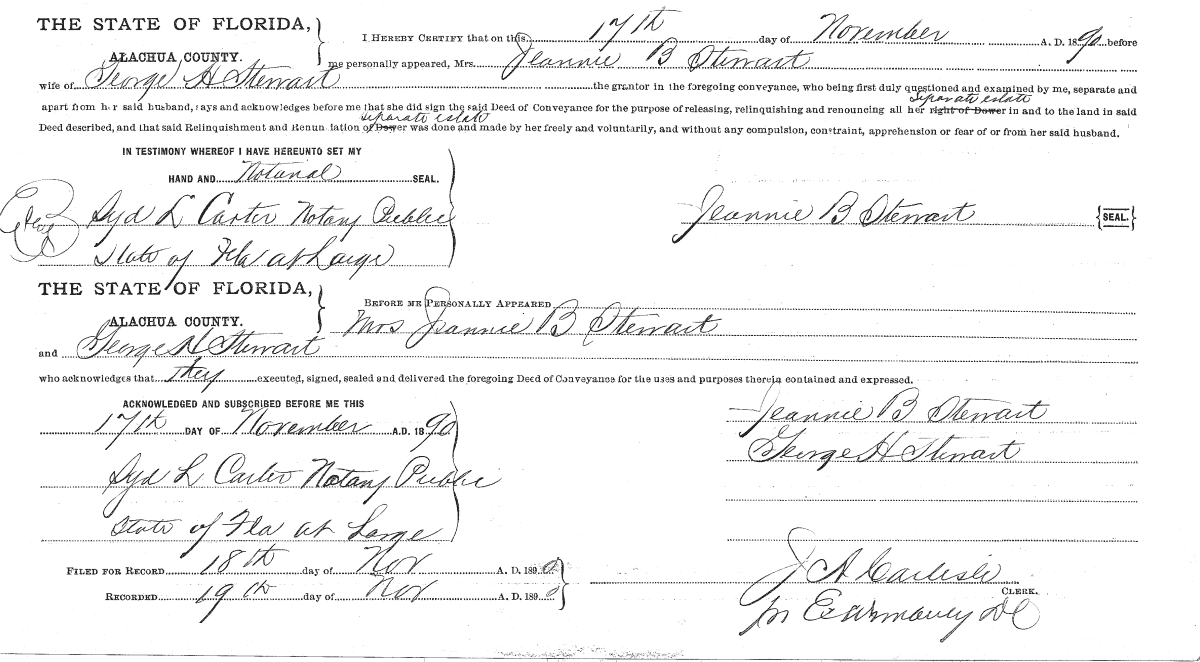 THE STATE OF FLORIDA,
ALACHUA COUNTY.
I HEREBY CERTIFY that on this 17th day of November A. D. 1890 before
me personally appeared, Mrs. Jeannie B Stewart
wife of George H Stewart the grantor in the foregoing conveyance, who being first duly questioned and examined by me, separate and
separate estate
apart from her said husband, says and acknowledges before me that she did sign the said Deed of Conveyance for the purpose of releasing, relinquishing and renouncing all her right of Dower in and to the land in said
separate estate
Deed described, and that said Relinquishment and Renun iation of Dower was done and made by her freely and voluntarily, and without any compulsion, constraint, apprehension or fear of or from her said husband.
IN TESTIMONY WHEREOF I HAVE HEREUNTO SET MY
HAND AND Notarial SEAL.
Syd L Carter Notary Public
State of Fla at Large
Jeannie B Stewart {SEAL.}
THE STATE OF FLORIDA,
ALACHUA COUNTY.
BEFORE ME PERSONALLY APPEARED
Mrs Jeannie B Stewart
and George H Stewart
who acknowledges that they executed, signed, sealed and delivered the foregoing Deed of Conveyance for the uses and purposes therein contained and expressed.
ACKNOWLEDGED AND SUBSCRIBED BEFORE ME THIS
17th DAY OF November A.D. 1890
Syd L Carter Notary Public
State of Fla at Large
Jeannie B Stewart
George H Stewart
FILED FOR RECORD 18th day of Nov A. D. 1890
RECORDED 19th day of Nov A. D. 1890
J A Carlisle
CLERK.
DC